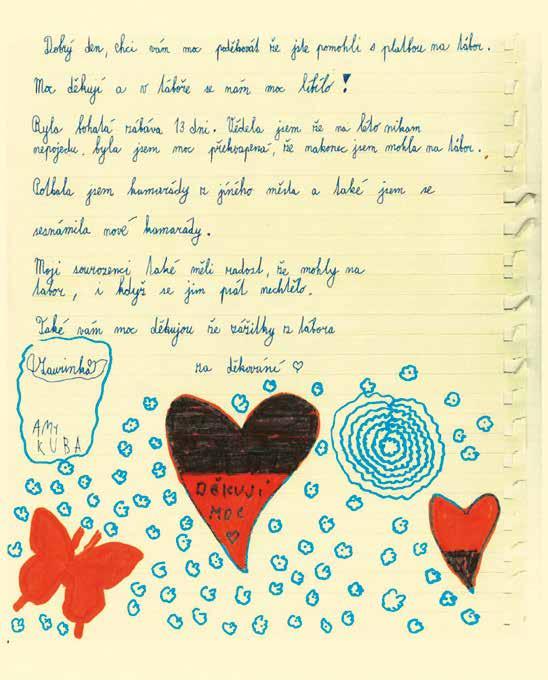 Dobrý den, chci vám moc poděkovát že jste pomohli s platbou na tábor.
Moc děkují a v táboře se nám moc líbílo!
Byla bohatá zábáva 13 dní. Vědela jsem že na léto nikam
nepojedu, byla jsem moc překvapená, že nakonec jsem mohla na tábor.
Potkala jsem kamarády z jíného města a také jsem se
sesnámila nové kamarády.
Moji sourozenci také měli radost, že mohly na
tábor, i když se jim prát nechtělo.
Také vám moc děkujou že zážitky z tábora
za děkování ♡
Laurinka
AMY
KUBA
DĚKUJI
MOC
♡